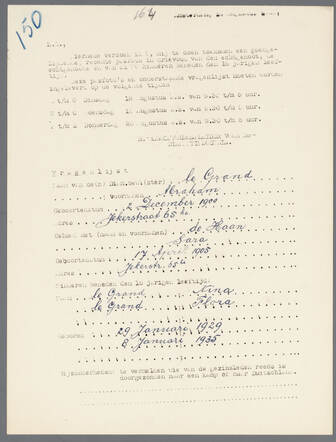 150
164
Hiermee verzoek ik U, mij te doen toekomen een goedge-
lijkende, recente pasfoto in drievoud van den echtgenoot, te
echtgenoote en van al de kinderen beneden den 16 jarigen leef-
tijd.
Deze pasfoto's en onderstaande vragenlijst moeten worden
ingeleverd op de volgende tijden
t/m Dinsdag 18 Augustus a.s. van 9.30 tot 6 uur.
t/m Woensdag 19 Augustus a.s. van 9.30 tot 6 uur.
t/m Z Donderdag 20 Augustus a.s. van 9.30 tot 6 uur.
Vragenlijst
Naam van de(n) le Grand
voornamen Abraham
Geboortedatum 2 December 1900
Adres Jekerstraat 65
Gehuwd met (naam en voornamen) de Haan
Sara
Geboortedatum 17 April 1905
Adres Jekerstr. 65
Kinderen beneden den 16 jarigen leeftijd.
Naam le Grand Nina
le Grand Flora
Geboren 29 Januari 1929
8 Januari 1935
Bijzonderheden te vermelden die van de gezinsleden reeds is
doorgezonden naar een kamp of naar Duitschland.